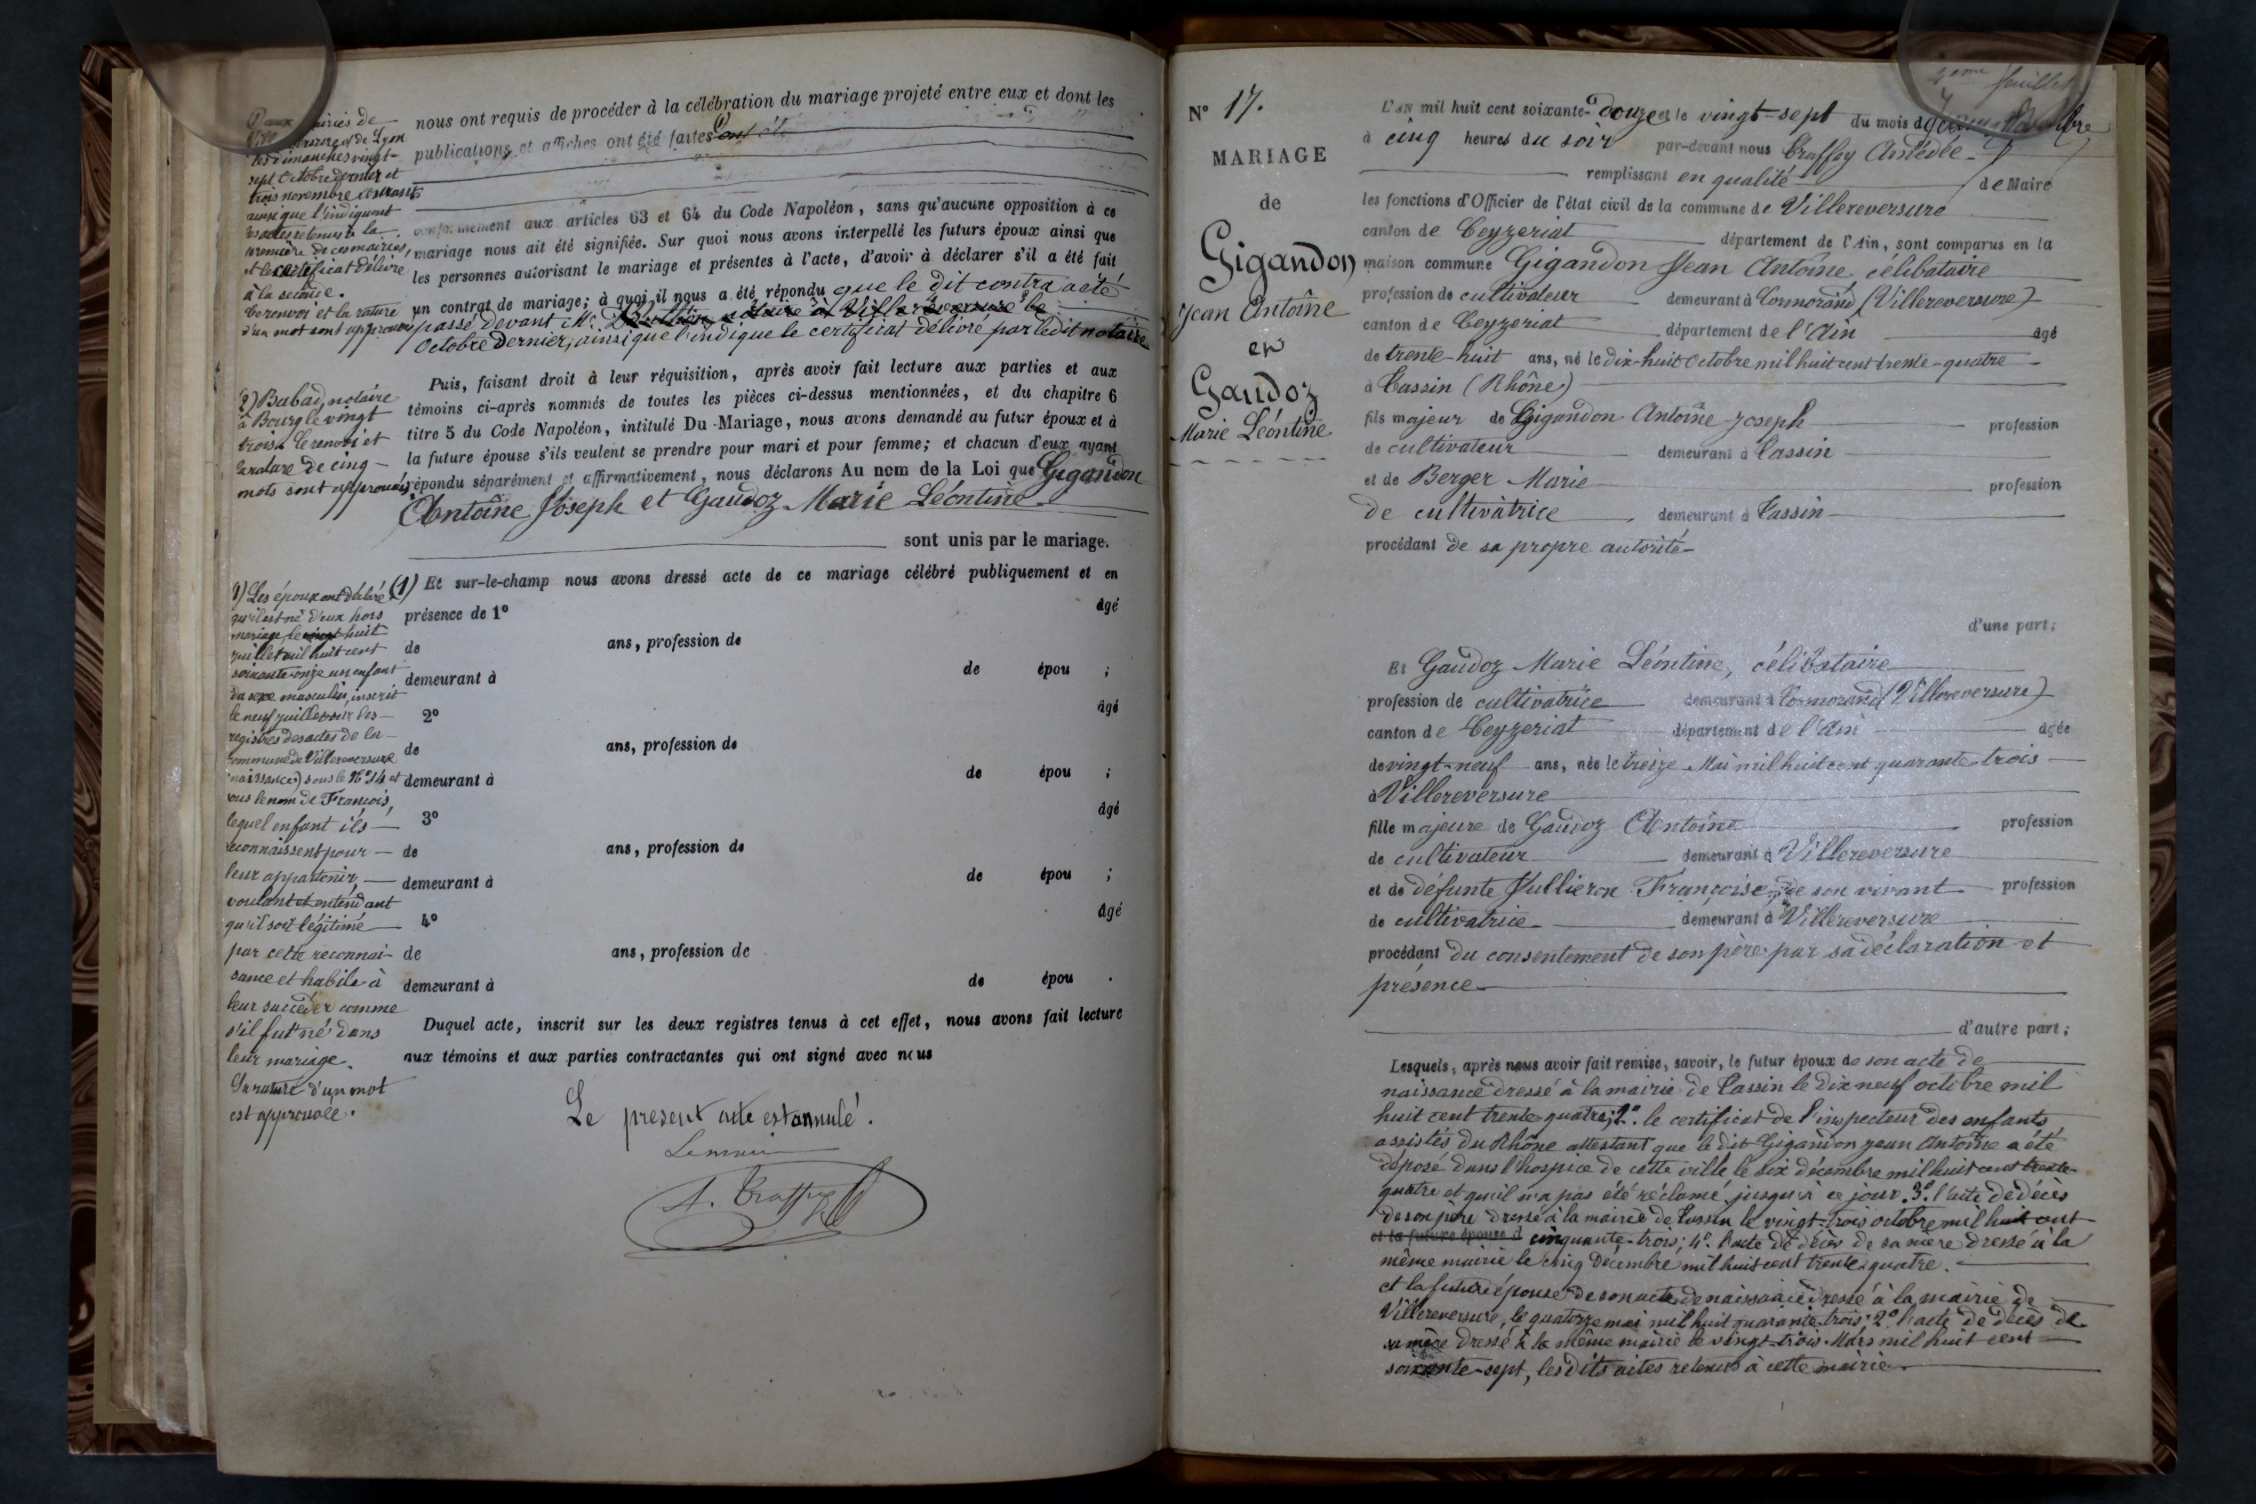 nous ont requis de procéder à la célébration du mariage projeté entre eux et dont les
publications et affiches ont été faites
conformément aux articles 63 et 64 du Code Napoléon, sans qu'aucune opposition à ce
mariage nous ait été signifiée. Sur quoi nous avons interpellé les futurs époux ainsi que
les personnes autorisant le mariage et présentes à l'acte, d'avoir à déclarer s'il a été fait
un contrat de mariage; à quoi il nous a été répondu que le dit contra a été
passé devant Me notaire à Villereversure le
Octobre Dernier, ainsi que l'indique le certificat délivré par le dit notaire
Puis, faisant droit à leur réquisition, après avoir fait lecture aux parties et aux
témoins ci-après nommés de toutes les pièces ci-dessus mentionnées, et du chapitre 6
titre 5 du Code Napoléon, intitulé Du Mariage, nous avons demandé au futur époux et à
la future épouse s'ils veulent se prendre pour mari et pour femme; et chacun d'eux ayant
répondu séparément et affirmativement, nous déclarons Au nom de la Loi que Gigandon
Antoine Joseph et Gaudoz Marie Léontine
sont unis par le mariage.
(1) Et sur-le-champ nous avons dressé acte de ce mariage célébré publiquement et en
présence de 1° âgé
de ans, profession de
demeurant à de épou ;
2° âgé
de ans, profession de
demeurant à de épou ;
3° âgé
de ans, profession de
demeurant à de épou ;
4° âgé
de ans, profession de
demeurant à de épou .
Duquel acte, inscrit sur les deux registres tenus à cet effet, nous avons fait lecture
aux témoins et aux parties contractantes qui ont signé avec nous
Le present acte est annulé.
Le maire
A. Craffey
mairies de
et de Lyon
les dimanches vingt-
sept Octobre dernier et
trois novembre courant
ainsi que l'indiquent
les actes retenus à la
première de ces mairies,
et le certificat délivré
à la seconde.
Ce renvoi et la rature
d'un mot sont approuvés
2) Babad, notaire
à Bourg le vingt
trois. Ce renvoi et
la rature de cinq
mots sont approuvés
1) Les époux ont déclaré
qu'il est né d'eux hors
mariage, le vingt huit
juillet mil huit cent
soixante-onze un enfant
du sexe masculin, inscrit
le neuf juillet sur les
registres des actes de la
commune de Villereversure
(naissances) sous le N° 14 et
sous le nom de François,
lequel enfant ils
reconnaissent pour
leur appartenir,
voulant et entendant
qu'il soit légitimé
par cette reconnai-
sance et habile à
leur succéder comme
s'il fut né dans
leur mariage.
La rature d'un mot
est approuvée.
2eme feuillet
N° 17.
MARIAGE
de
Gigandon
Jean Antoine
et
Gaudoz
Marie Léontine
L'AN mil huit cent soixante-douze et le vingt-sept du mois de Novembre
à cinq heures du soir par-devant nous Craffey Amédée
remplissant en qualité de Maire
les fonctions d'Officier de l'état civil de la commune de Villereversure
canton de Ceyzeriat département de l'Ain, sont comparus en la
maison commune Gigandon Jean Antoine, célibataire
profession de cultivateur demeurant à Cormorand (Villereversure)
canton de Ceyzeriat département de l'Ain âgé
de trente-huit ans, né le dix-huit Octobre mil huit cent trente-quatre
à Cassin (Rhône)
fils majeur de Gigandon Antoine Joseph profession
de cultivateur demeurant à Cassin
et de Berger Marie profession
de cultivatrice demeurant à Cassin
procédant de sa propre autorité
d'une part;
Et Gaudoz Marie Léontine, célibataire
profession de cultivatrice demeurant à Cormorand (Villereversure)
canton de Ceyzeriat département de l'Ain âgée
de vingt-neuf ans, née le treize Mai mil huit cent quarante-trois
à Villereversure
fille majeure de Gaudoz Antoine profession
de cultivateur demeurant à Villereversure
et de défunte Vullieron Françoise, de son vivant profession
de cultivatrice demeurant à Villereversure
procédant du consentement de son père par sa déclaration et
présence
d'autre part;
Lesquels, après nous avoir fait remise, savoir, le futur époux de son acte de
naissance dressé à la mairie de Cassin le dix neuf octobre mil
huit cent trente quatre; 2° le certificat de l'inspecteur des enfants
assistés du Rhône attestant que le dit Gigandon Jean Antoine a été
déposé dans l'hospice de cette ville le six décembre mil huit cent trente-
quatre et qu'il n'a pas été réclamé jusqu'à ce jour. 3° l'acte de décès
de son père dressé à la mairie de Cassin le vingt-trois octobre mil huit cent
et la future épouse d cinquante-trois; 4° l'acte de décès de sa mère dressé à la
même mairie le cinq Décembre mil huit cent trente-quatre.
et la future épouse de son acte de naissance dressé à la mairie de
Villereversure, le quatorze mai mil huit quarante-trois; 2° l'acte de décès de
sa mère dressé à la même mairie le vingt-trois Mars mil huit cent
soixante-sept, les dits actes retenus à cette mairie.